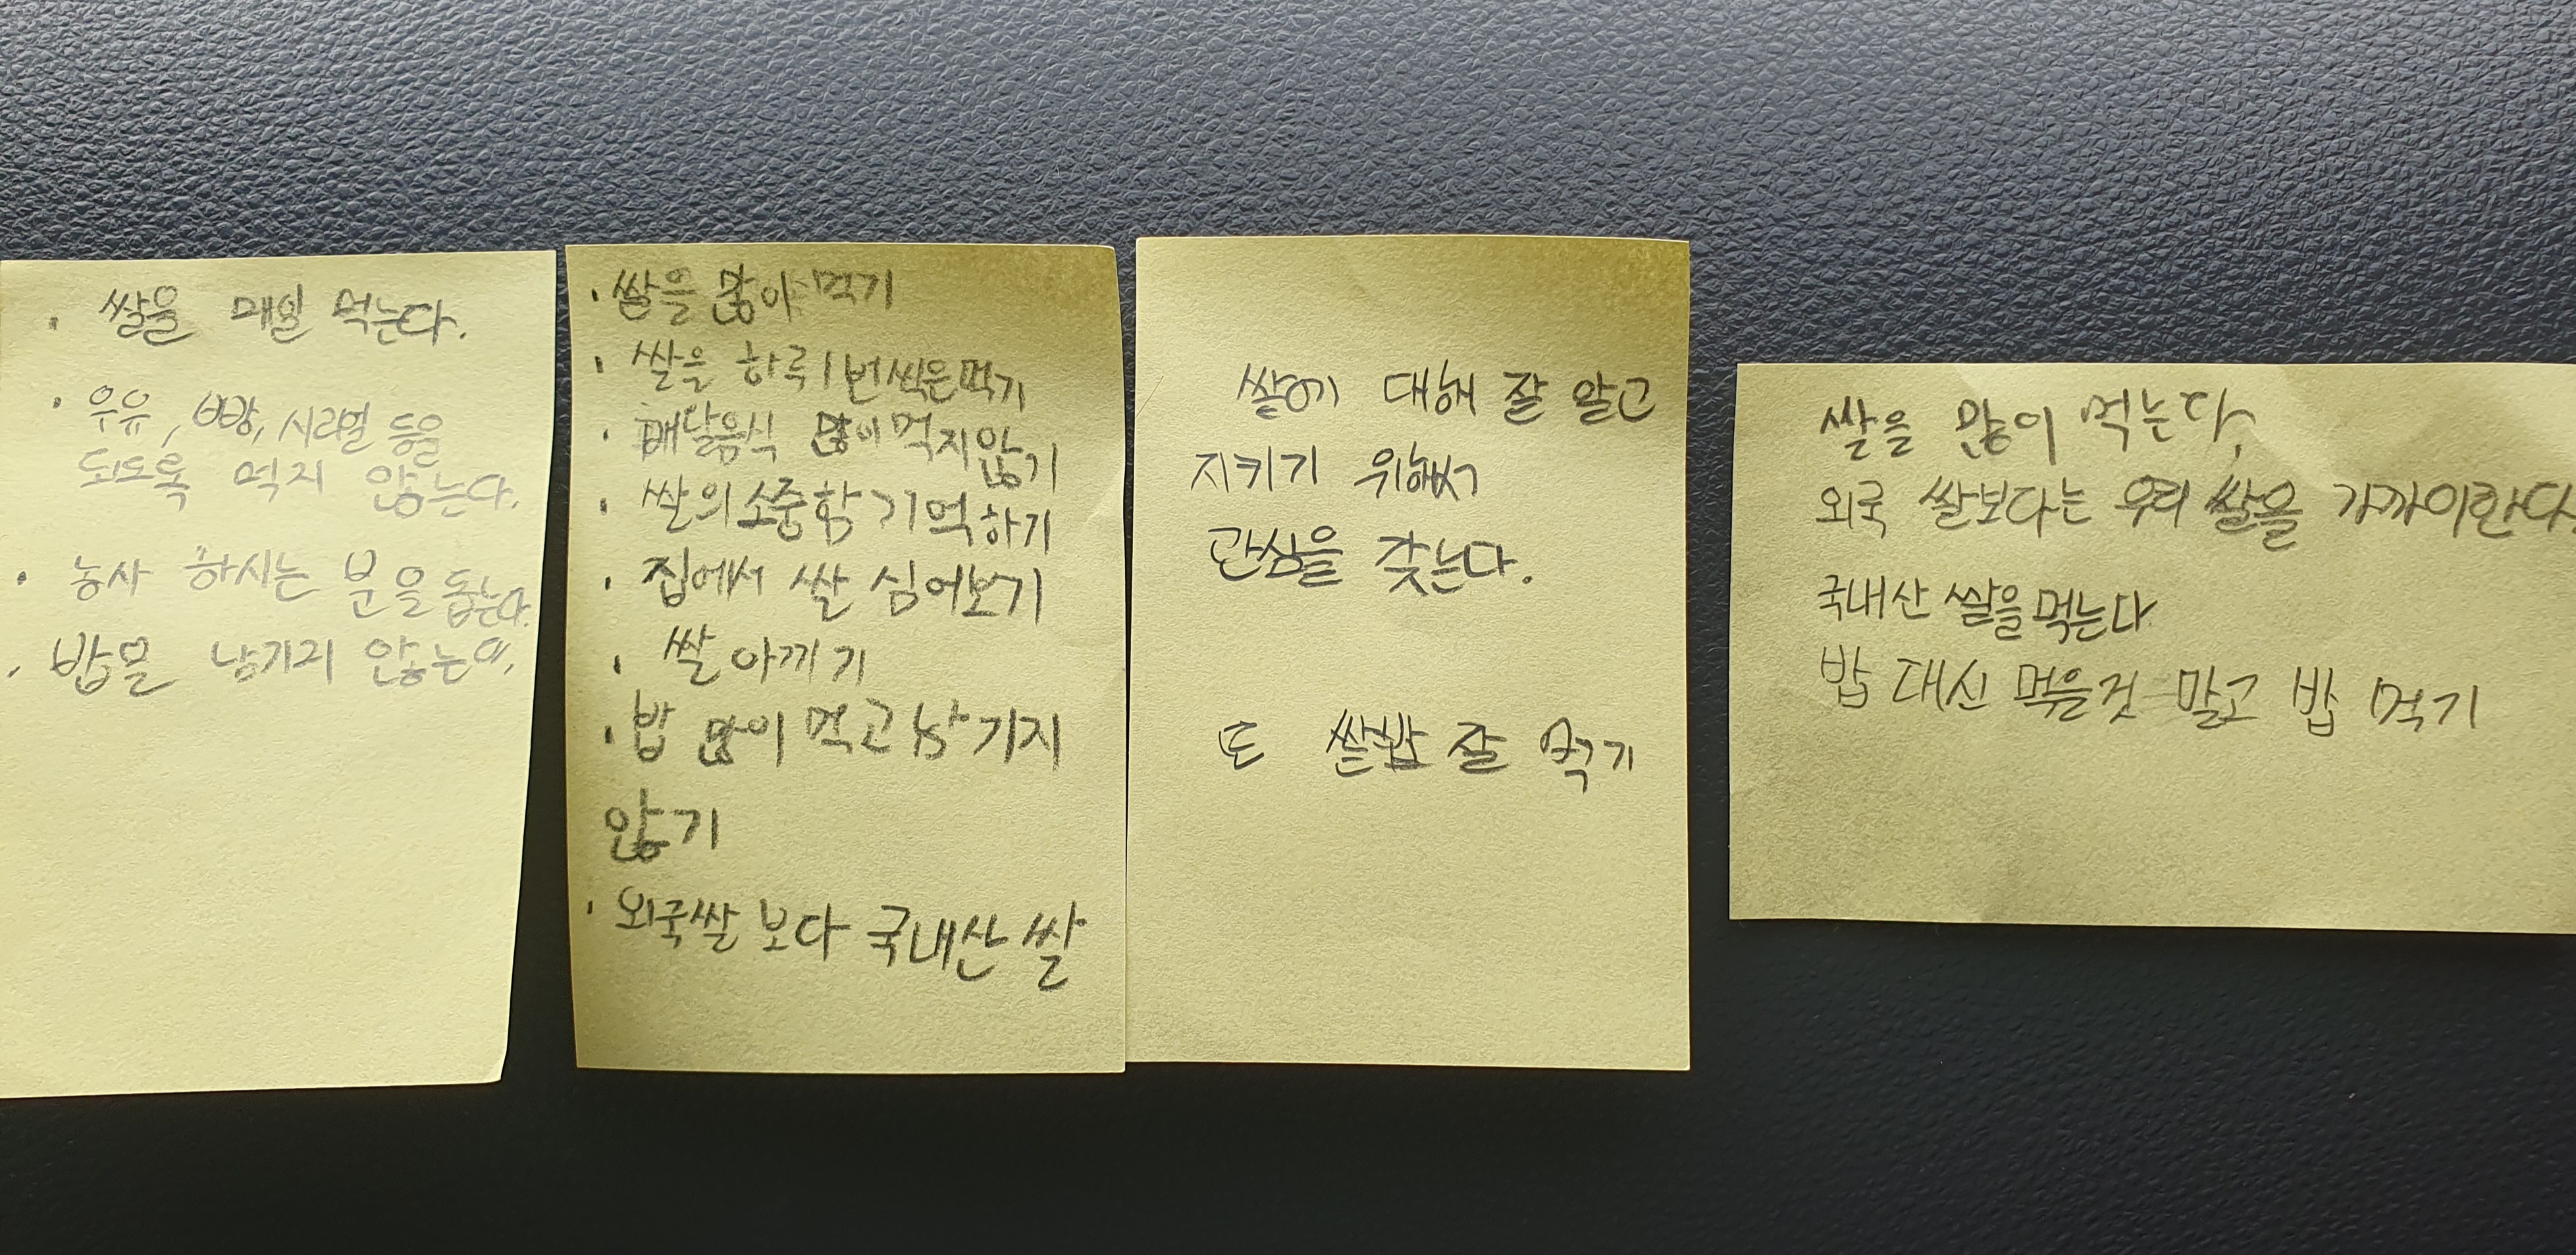 · 쌀을 매일 먹는다.
· 우유, 빵, 시리얼 등을
되도록 먹지 않는다.
· 농사 하시는 분을 돕는다.
· 밥을 남기지 않는다.
· 쌀을 많이 먹기
· 쌀을 하루 1번씩은 먹기
· 배달음식 많이 먹지 않기
· 쌀의 소중함 기억하기
· 집에서 쌀 심어보기
· 쌀 아끼기
· 밥 많이 먹고 남기지
않기
· 외국쌀 보다 국내산 쌀
쌀에 대해 잘 알고
지키기 위해서
관심을 갖는다.
또 쌀밥 잘 먹기
쌀을 많이 먹는다.
외국 쌀보다는 우리 쌀을 가까이한다
국내산 쌀을 먹는다
밥 대신 먹을것 말고 밥 먹기